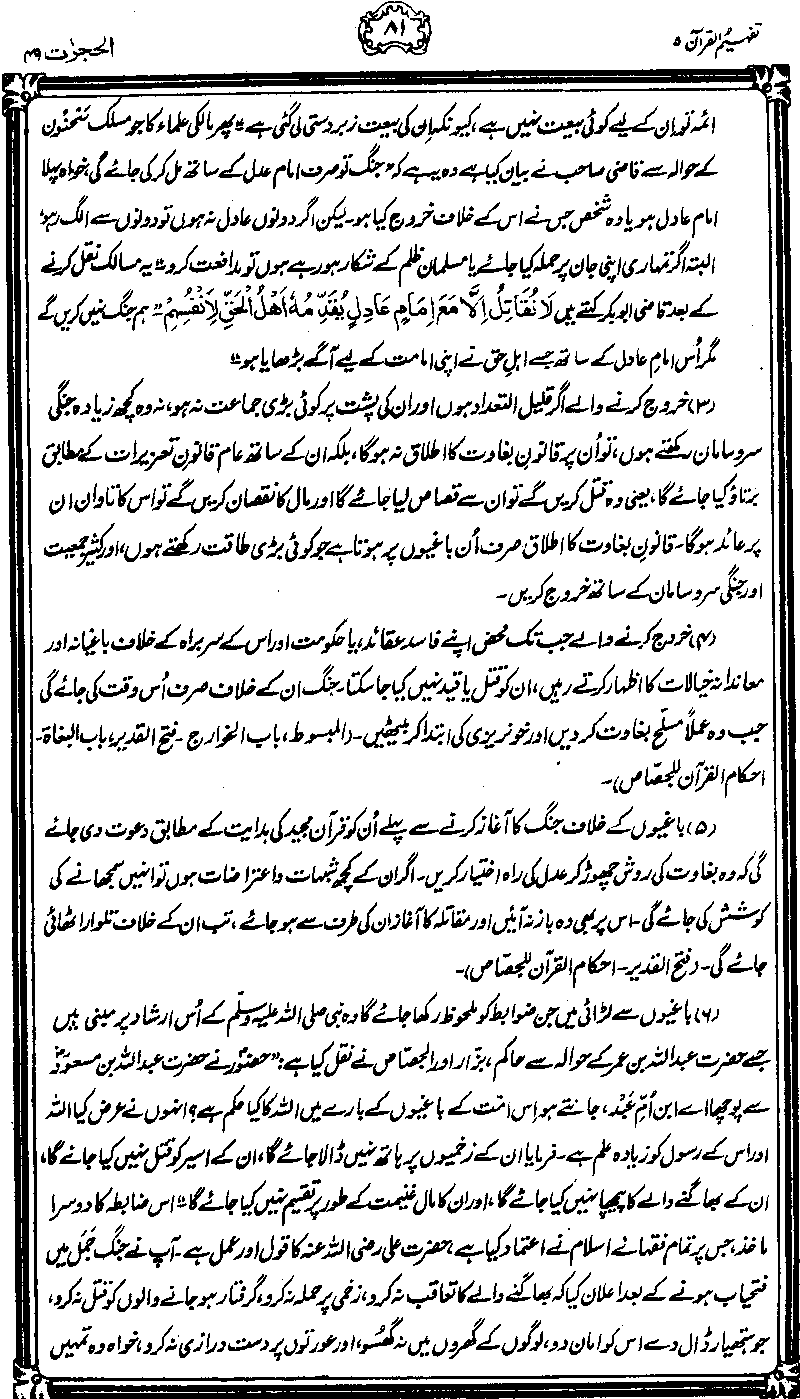 تفہیم القرآن ۵
۸۱
الحجرات ۴۹
ائمہ تو ان کے لیے کوئی بیعت نہیں ہے، کیونکہ ان کی بیعت زبردستی لی گئی ہے"۔ پھر مالکی علماء کا جو مسلک سَحْنُون
کے حوالہ سے قاضی صاحب نے بیان کیا ہے وہ یہ ہے کہ "جنگ تو صرف امام عدل کے ساتھ مل کر کی جائے گی، خواہ پہلا
امام عادل ہو یا وہ شخص جس نے اس کے خلاف خروج کیا ہو۔ لیکن اگر دونوں عادل نہ ہوں تو دونوں سے الگ رہو،
البتہ اگر تمہاری اپنی جان پر حملہ کیا جائے یا مسلمان ظلم کے شکار ہو رہے ہوں تو مدافعت کرو"۔ یہ مسالک نقل کرنے
کے بعد قاضی ابوبکر کہتے ہیں لَا نُقَاتِلُ اِلَّا مَعَ اِمَامٍ عَادِلٍ یُقَدِّمُہٗ اَھْلُ الْحَقِّ لِاَنْفُسِہِمْ "ہم جنگ نہیں کریں گے
مگر اُس امامِ عادل کے ساتھ جسے اہلِ حق نے اپنی امامت کے لیے آگے بڑھایا ہو"۔
(۳) خروج کرنے والے اگر قلیل التعداد ہوں اور ان کی پشت پر کوئی بڑی جماعت نہ ہو، نہ وہ کچھ زیادہ جنگی
سروسامان رکھتے ہوں، تو اُن پر قانونِ بغاوت کا اطلاق نہ ہوگا، بلکہ ان کے ساتھ عام قانونِ تعزیرات کے مطابق
برتاؤ کیا جائے گا، یعنی وہ قتل کریں گے تو ان سے قصاص لیا جائے گا اور مال کا نقصان کریں گے تو اس کا تاوان ان
پر عائد ہوگا۔ قانونِ بغاوت کا اطلاق صرف اُن باغیوں پر ہوتا ہے جو کوئی بڑی طاقت رکھتے ہوں، اور کثیر جمعیت
اور جنگی سروسامان کے ساتھ خروج کریں۔
(۴) خروج کرنے والے جب تک محض اپنے فاسد عقائد، یا حکومت اور اس کے سربراہ کے خلاف باغیانہ اور
معاندانہ خیالات کا اظہار کرتے رہیں، ان کو قتل یا قید نہیں کیا جا سکتا۔ جنگ ان کے خلاف صرف اُس وقت کی جائے گی
جب وہ عملاً مسلّح بغاوت کر دیں اور خونریزی کی ابتدا کر بیٹھیں۔ (المبسوط، باب الخوارج۔ فتح القدیر، باب البغاۃ۔
احکام القرآن للجصّاص)۔
(۵) باغیوں کے خلاف جنگ کا آغاز کرنے سے پہلے اُن کو قرآن مجید کی ہدایت کے مطابق دعوت دی جائے
گی کہ وہ بغاوت کی روش چھوڑ کر عدل کی راہ اختیار کریں۔ اگر ان کے کچھ شبہات و اعتراضات ہوں تو انہیں سمجھانے کی
کوشش کی جائے گی۔ اس پر بھی وہ باز نہ آئیں اور مقاتلہ کا آغاز ان کی طرف سے ہو جائے، تب ان کے خلاف تلوار اٹھائی
جائے گی۔ (فتح القدیر۔ احکام القرآن للجصّاص)۔
(۶) باغیوں سے لڑائی میں جن ضوابط کو ملحوظ رکھا جائے گا وہ نبی صلی اللہ علیہ وسلم کے اُس ارشاد پر مبنی ہیں
جسے حضرت عبداللہ بن عمر کے حوالہ سے حاکم، بزّار اور الجصّاص نے نقل کیا ہے: "حضورؐ نے حضرت عبداللہ بن مسعودؓ
سے پوچھا اے ابن اُمِّ عَبْد، جانتے ہو اِس امت کے باغیوں کے بارے میں اللہ کا کیا حکم ہے؟ انہوں نے عرض کیا اللہ
اور اس کے رسول کو زیادہ علم ہے۔ فرمایا ان کے زخمیوں پر ہاتھ نہیں ڈالا جائے گا، ان کے اسیر کو قتل نہیں کیا جائے گا،
ان کے بھاگنے والے کا پیچھا نہیں کیا جائے گا، اور ان کا مال غنیمت کے طور پر تقسیم نہیں کیا جائے گا"۔ اس ضابطہ کا دوسرا
ماخذ، جس پر تمام فقہائے اسلام نے اعتماد کیا ہے، حضرت علی رضی اللہ عنہ کا قول اور عمل ہے۔ آپ نے جنگ جَمَل میں
فتحیاب ہونے کے بعد اعلان کیا کہ بھاگنے والے کا تعاقب نہ کرو، زخمی پر حملہ نہ کرو، گرفتار ہو جانے والوں کو قتل نہ کرو،
جو ہتھیار ڈال دے اس کو امان دو، لوگوں کے گھروں میں نہ گھُسو، اور عورتوں پر دست درازی نہ کرو، خواہ وہ تمہیں